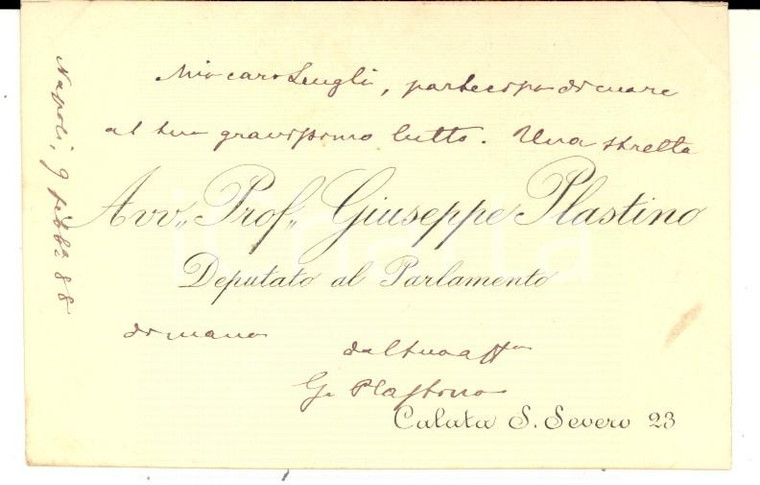 Napoli, 9 febb. 88
Mio caro Lengli, partecipo di cuore
al tuo gravissimo lutto. Una stretta
Avv„ Prof„ Giuseppe Plastino
Deputato al Parlamento
di mano
dal tuo aff.mo
G. Plastino
Calata S. Severo 23